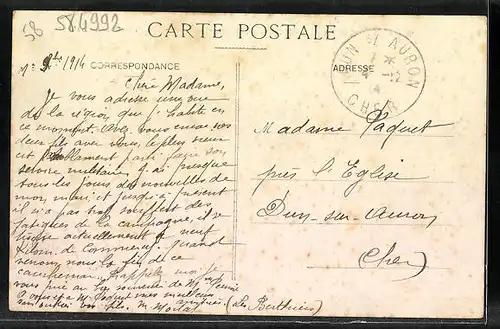 58 584992
CARTE POSTALE
CORRESPONDANCE
ADRESSE
1914
DUN S/ AURON
CHER
Chère Madame,
Je vous adresse une vue
de la région, que j'habite en
ce moment. Avez vous encore vos
deux fils avec vous, le plus jeune
est parti faire son
service militaire, j'ai presque
tous les jours des nouvelles de
mon mari et jusqu'à présent
il n'a pas trop souffert des
fatigues de la campagne, il se
trouve actuellement à neuf
kilom. de Commercy. Quand
verrons nous la fin de ce
cauchemar. Rappelez moi je
vous prie au bon souvenir de
Madame Paquet
près l'Eglise
Dun-sur-Auron
(Cher)